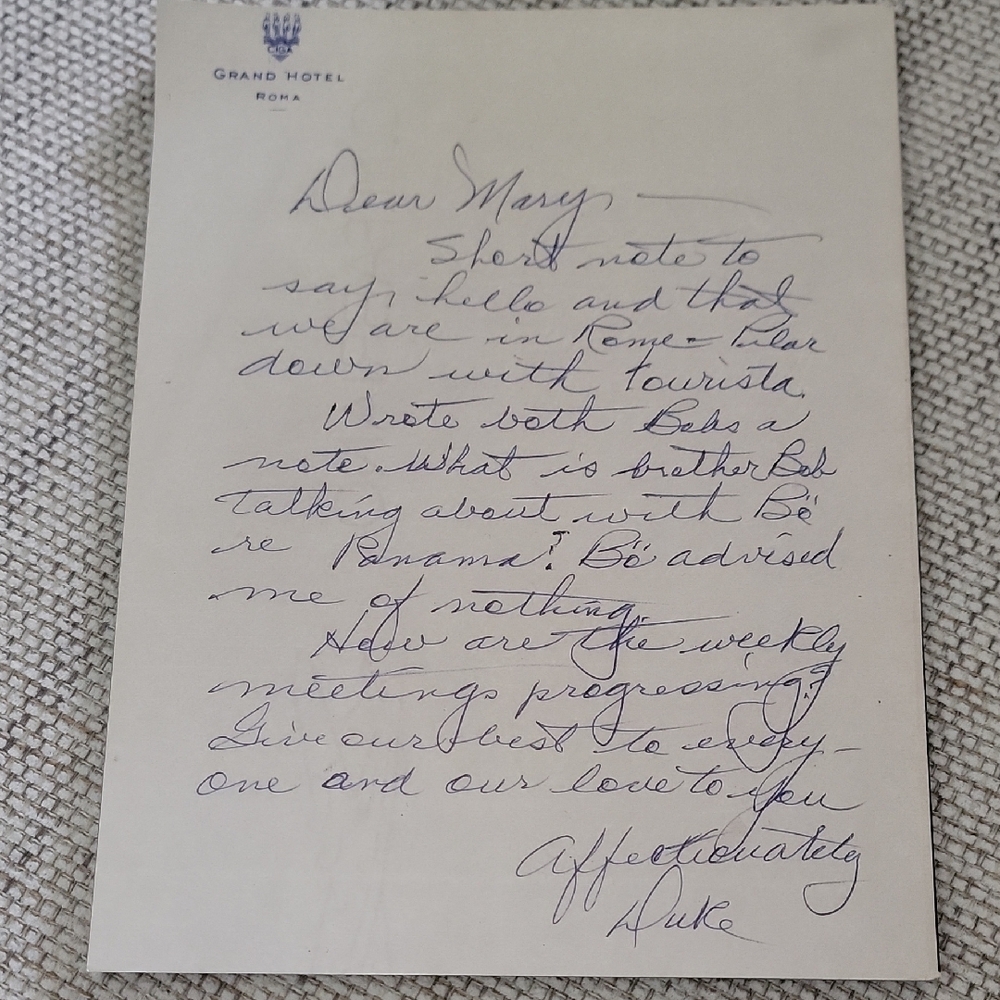 CIGA
GRAND HOTEL
ROMA
Dear Mary —
Short note to
say hello and that
we are in Rome - Pilar
down with tourista.
Wrote both Bobs a
note. What is brother Bob
talking about with Bö
re Panama? Bö advised
me of nothing.
How are the weekly
meetings progressing?
Give our best to every-
one and our love to you
Affectionately
Duke